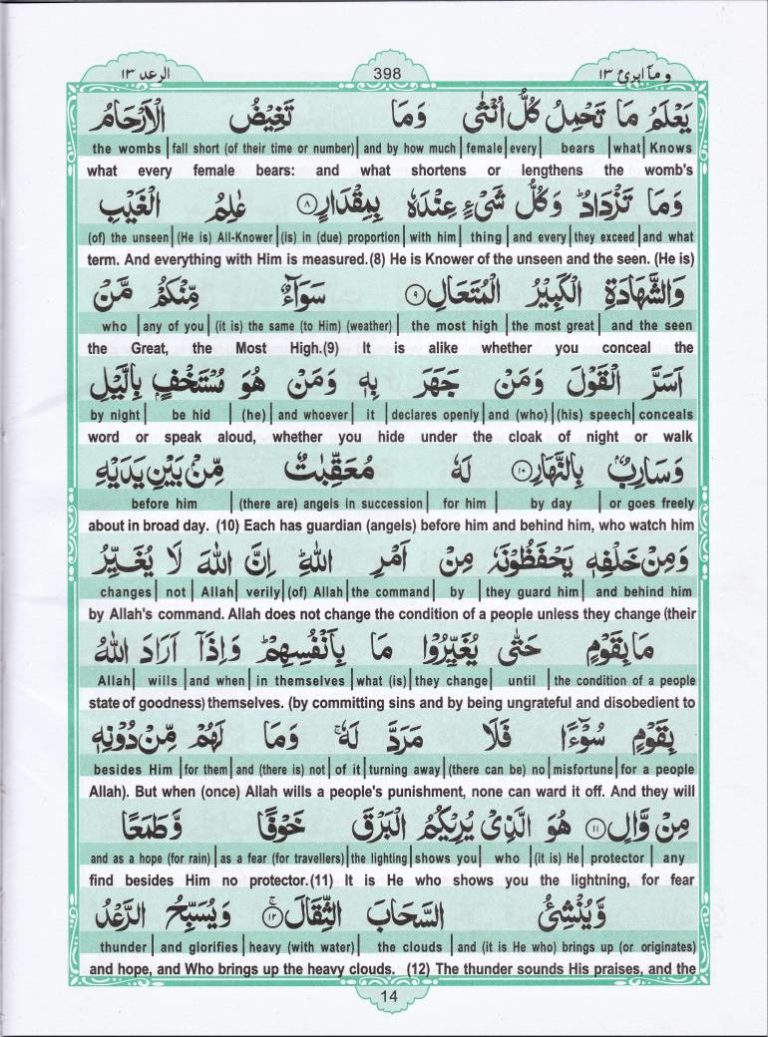 الرعد ١٣
398
و مآ ابرئ ١٣
یَعْلَمُ مَا تَحْمِلُ كُلُّ اُنْثٰی وَمَا تَغِیْضُ الْاَرْحَامُ
the wombs | fall short (of their time or number) | and by how much | female | every | bears | what | Knows
what every female bears: and what shortens or lengthens the womb's
وَمَا تَزْدَادُ ؕ وَكُلُّ شَیْءٍ عِنْدَهٗ بِمِقْدَارٍ ۸ عٰلِمُ الْغَیْبِ
(of) the unseen | (He is) All-Knower | (is) in (due) proportion | with him | thing | and every | they exceed | and what
term. And everything with Him is measured.(8) He is Knower of the unseen and the seen. (He is)
وَالشَّهَادَةِ الْكَبِیْرُ الْمُتَعَالِ ۹ سَوَآءٌ مِّنْكُمْ مَّنْ
who | any of you | (it is) the same (to Him) (weather) | the most high | the most great | and the seen
the Great, the Most High.(9) It is alike whether you conceal the
اَسَرَّ الْقَوْلَ وَمَنْ جَهَرَ بِهٖ وَمَنْ هُوَ مُسْتَخْفٍۭ بِالَّیْلِ
by night | be hid | (he) | and whoever | it | declares openly | and (who) | (his) speech | conceals
word or speak aloud, whether you hide under the cloak of night or walk
وَسَارِبٌۢ بِالنَّهَارِ ۱۰ لَهٗ مُعَقِّبٰتٌ مِّنْۢ بَیْنِ یَدَیْهِ
before him | (there are) angels in succession | for him | by day | or goes freely
about in broad day. (10) Each has guardian (angels) before him and behind him, who watch him
وَمِنْ خَلْفِهٖ یَحْفَظُوْنَهٗ مِنْ اَمْرِ اللّٰهِ ؕ اِنَّ اللّٰهَ لَا یُغَیِّرُ
changes | not | Allah | verily | (of) Allah | the command | by | they guard him | and behind him
by Allah's command. Allah does not change the condition of a people unless they change (their
مَا بِقَوْمٍ حَتّٰی یُغَیِّرُوْا مَا بِاَنْفُسِهِمْ ؕ وَاِذَاۤ اَرَادَ اللّٰهُ
Allah | wills | and when | in themselves | what (is) | they change | until | the condition of a people
state of goodness) themselves. (by committing sins and by being ungrateful and disobedient to
بِقَوْمٍ سُوْٓءًا فَلَا مَرَدَّ لَهٗ ۚ وَمَا لَهُمْ مِّنْ دُوْنِهٖ
besides Him | for them | and (there is) not | of it | turning away | (there can be) no | misfortune | for a people
Allah). But when (once) Allah wills a people's punishment, none can ward it off. And they will
مِنْ وَّالٍ ۱۱ هُوَ الَّذِیْ یُرِیْكُمُ الْبَرْقَ خَوْفًا وَّطَمَعًا
and as a hope (for rain) | as a fear (for travellers) | the lighting | shows you | who | (it is) He | protector | any
find besides Him no protector.(11) It is He who shows you the lightning, for fear
وَّیُنْشِئُ السَّحَابَ الثِّقَالَ ۚ ۱۲ وَیُسَبِّحُ الرَّعْدُ
thunder | and glorifies | heavy (with water) | the clouds | and (it is He who) brings up (or originates)
and hope, and Who brings up the heavy clouds. (12) The thunder sounds His praises, and the
14